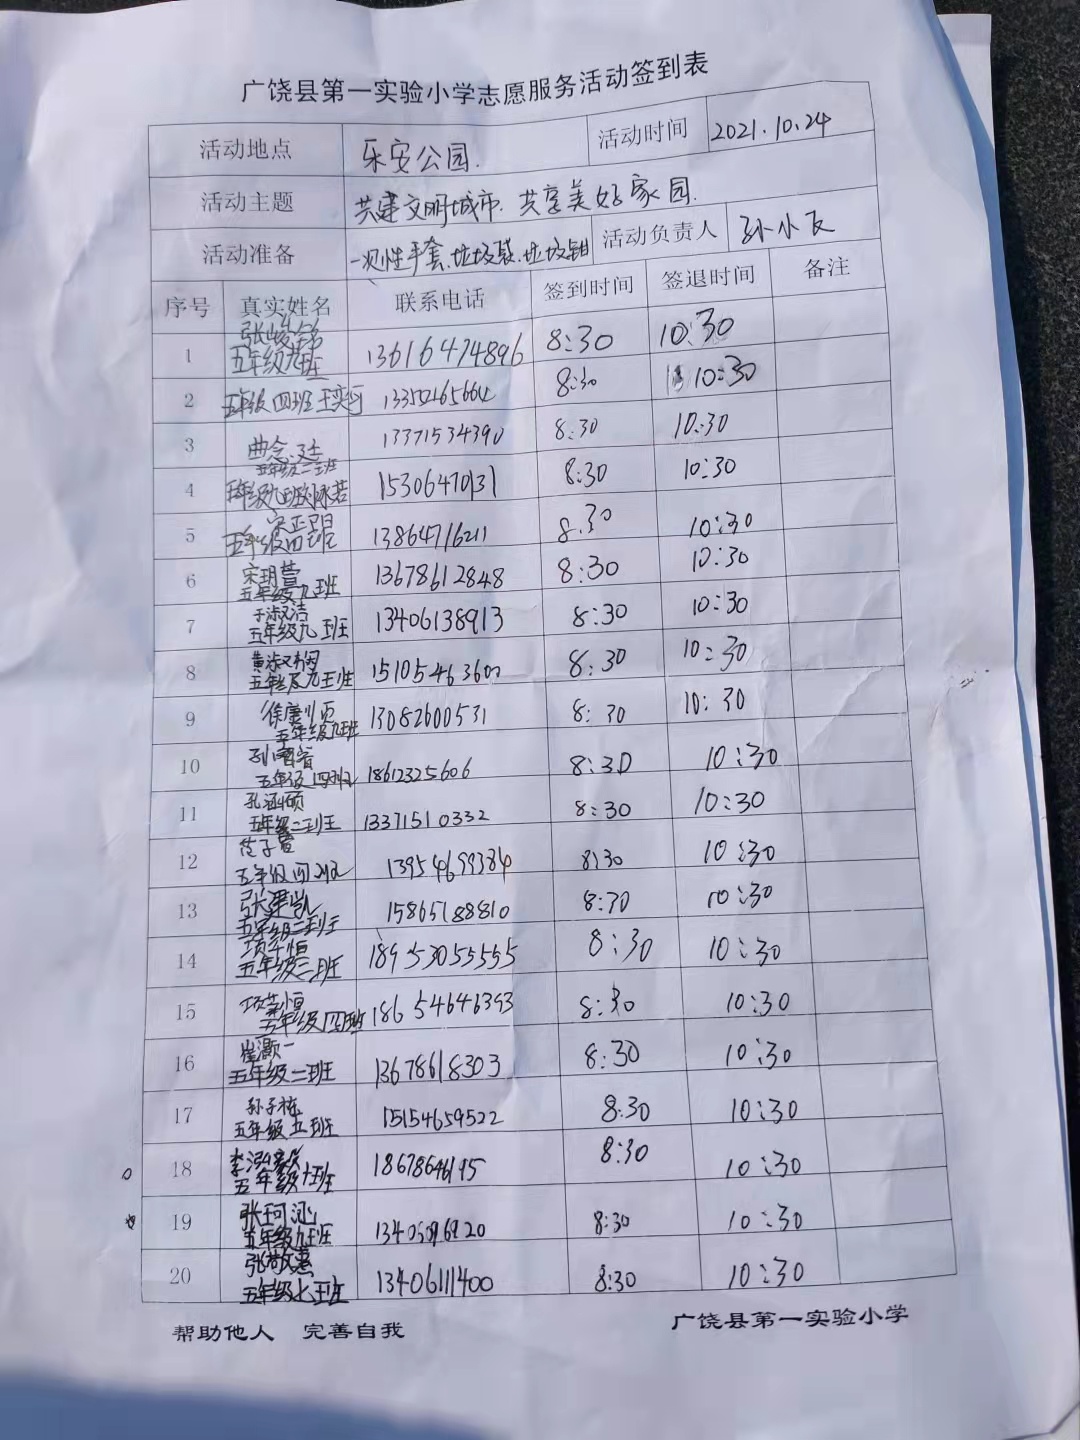 广饶县第一实验小学志愿服务活动签到表
活动地点 乐安公园. 活动时间 2021.10.24
活动主题 共建文明城市.共享美好家园.
活动准备 一次性手套、垃圾袋、垃圾钳 活动负责人 孙小飞
序号 真实姓名 联系电话 签到时间 签退时间 备注
1 张峻铭 五年级九班 13616474896 8:30 10:30
2 五年级四班 8:30 10:30
3 五年级二班 13371534390 8:30 10:30
4 五年级九班 15306470131 8:30 10:30
5 五年级四班 13864716211 8:30 10:30
6 宋玥萱 五年级九班 13678612848 8:30 10:30
7 于淑洁 五年级九班 13406138913 8:30 10:30
8 五年级九班 8:30 10:30
9 五年级九班 13082600531 8:30 10:30
10 五年级四班 18612325606 8:30 10:30
11 孔涵硕 五年级二班 13371510332 8:30 10:30
12 五年级四班 13954699384 8:30 10:30
13 五年级二班 15865188810 8:30 10:30
14 五年级二班 18953055555 8:30 10:30
15 五年级四班 18654646393 8:30 10:30
16 崔灏一 五年级二班 13678618303 8:30 10:30
17 孙子栋 五年级五班 15154659522 8:30 10:30
18 李泓毅 五年级十班 8:30 10:30
19 张珂涵 五年级九班 8:30 10:30
20 张敬惠 五年级七班 13406111400 8:30 10:30
帮助他人 完善自我 广饶县第一实验小学